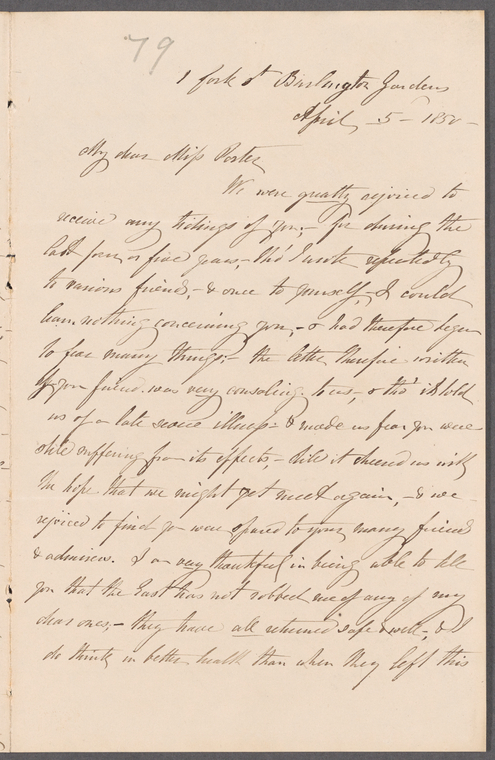 79
1 Cork St Burlington Gardens
April 5 - 1850 -
My dear Miss Porter
We were greatly rejoiced to
receive any tidings of you; - for during the
last four or five years, - tho' I wrote repeatedly
to various friends, - & once to yourself, - I could
learn nothing concerning you, - & had therefore began
to fear many things; - the letter therefore written
by your friend was very consoling to us, - & tho' it told
us of a late severe illness - & made us fear you were
still suffering from its effects - still it cheered us with
the hope that we might yet meet again, - & we
rejoiced to find you were spared to your many friends
& admirers. I am very thankful in being able to tell
you that the East has not robbed me of any of my
dear ones, - they have all returned safe & well - & I
do think in better health than when they left this